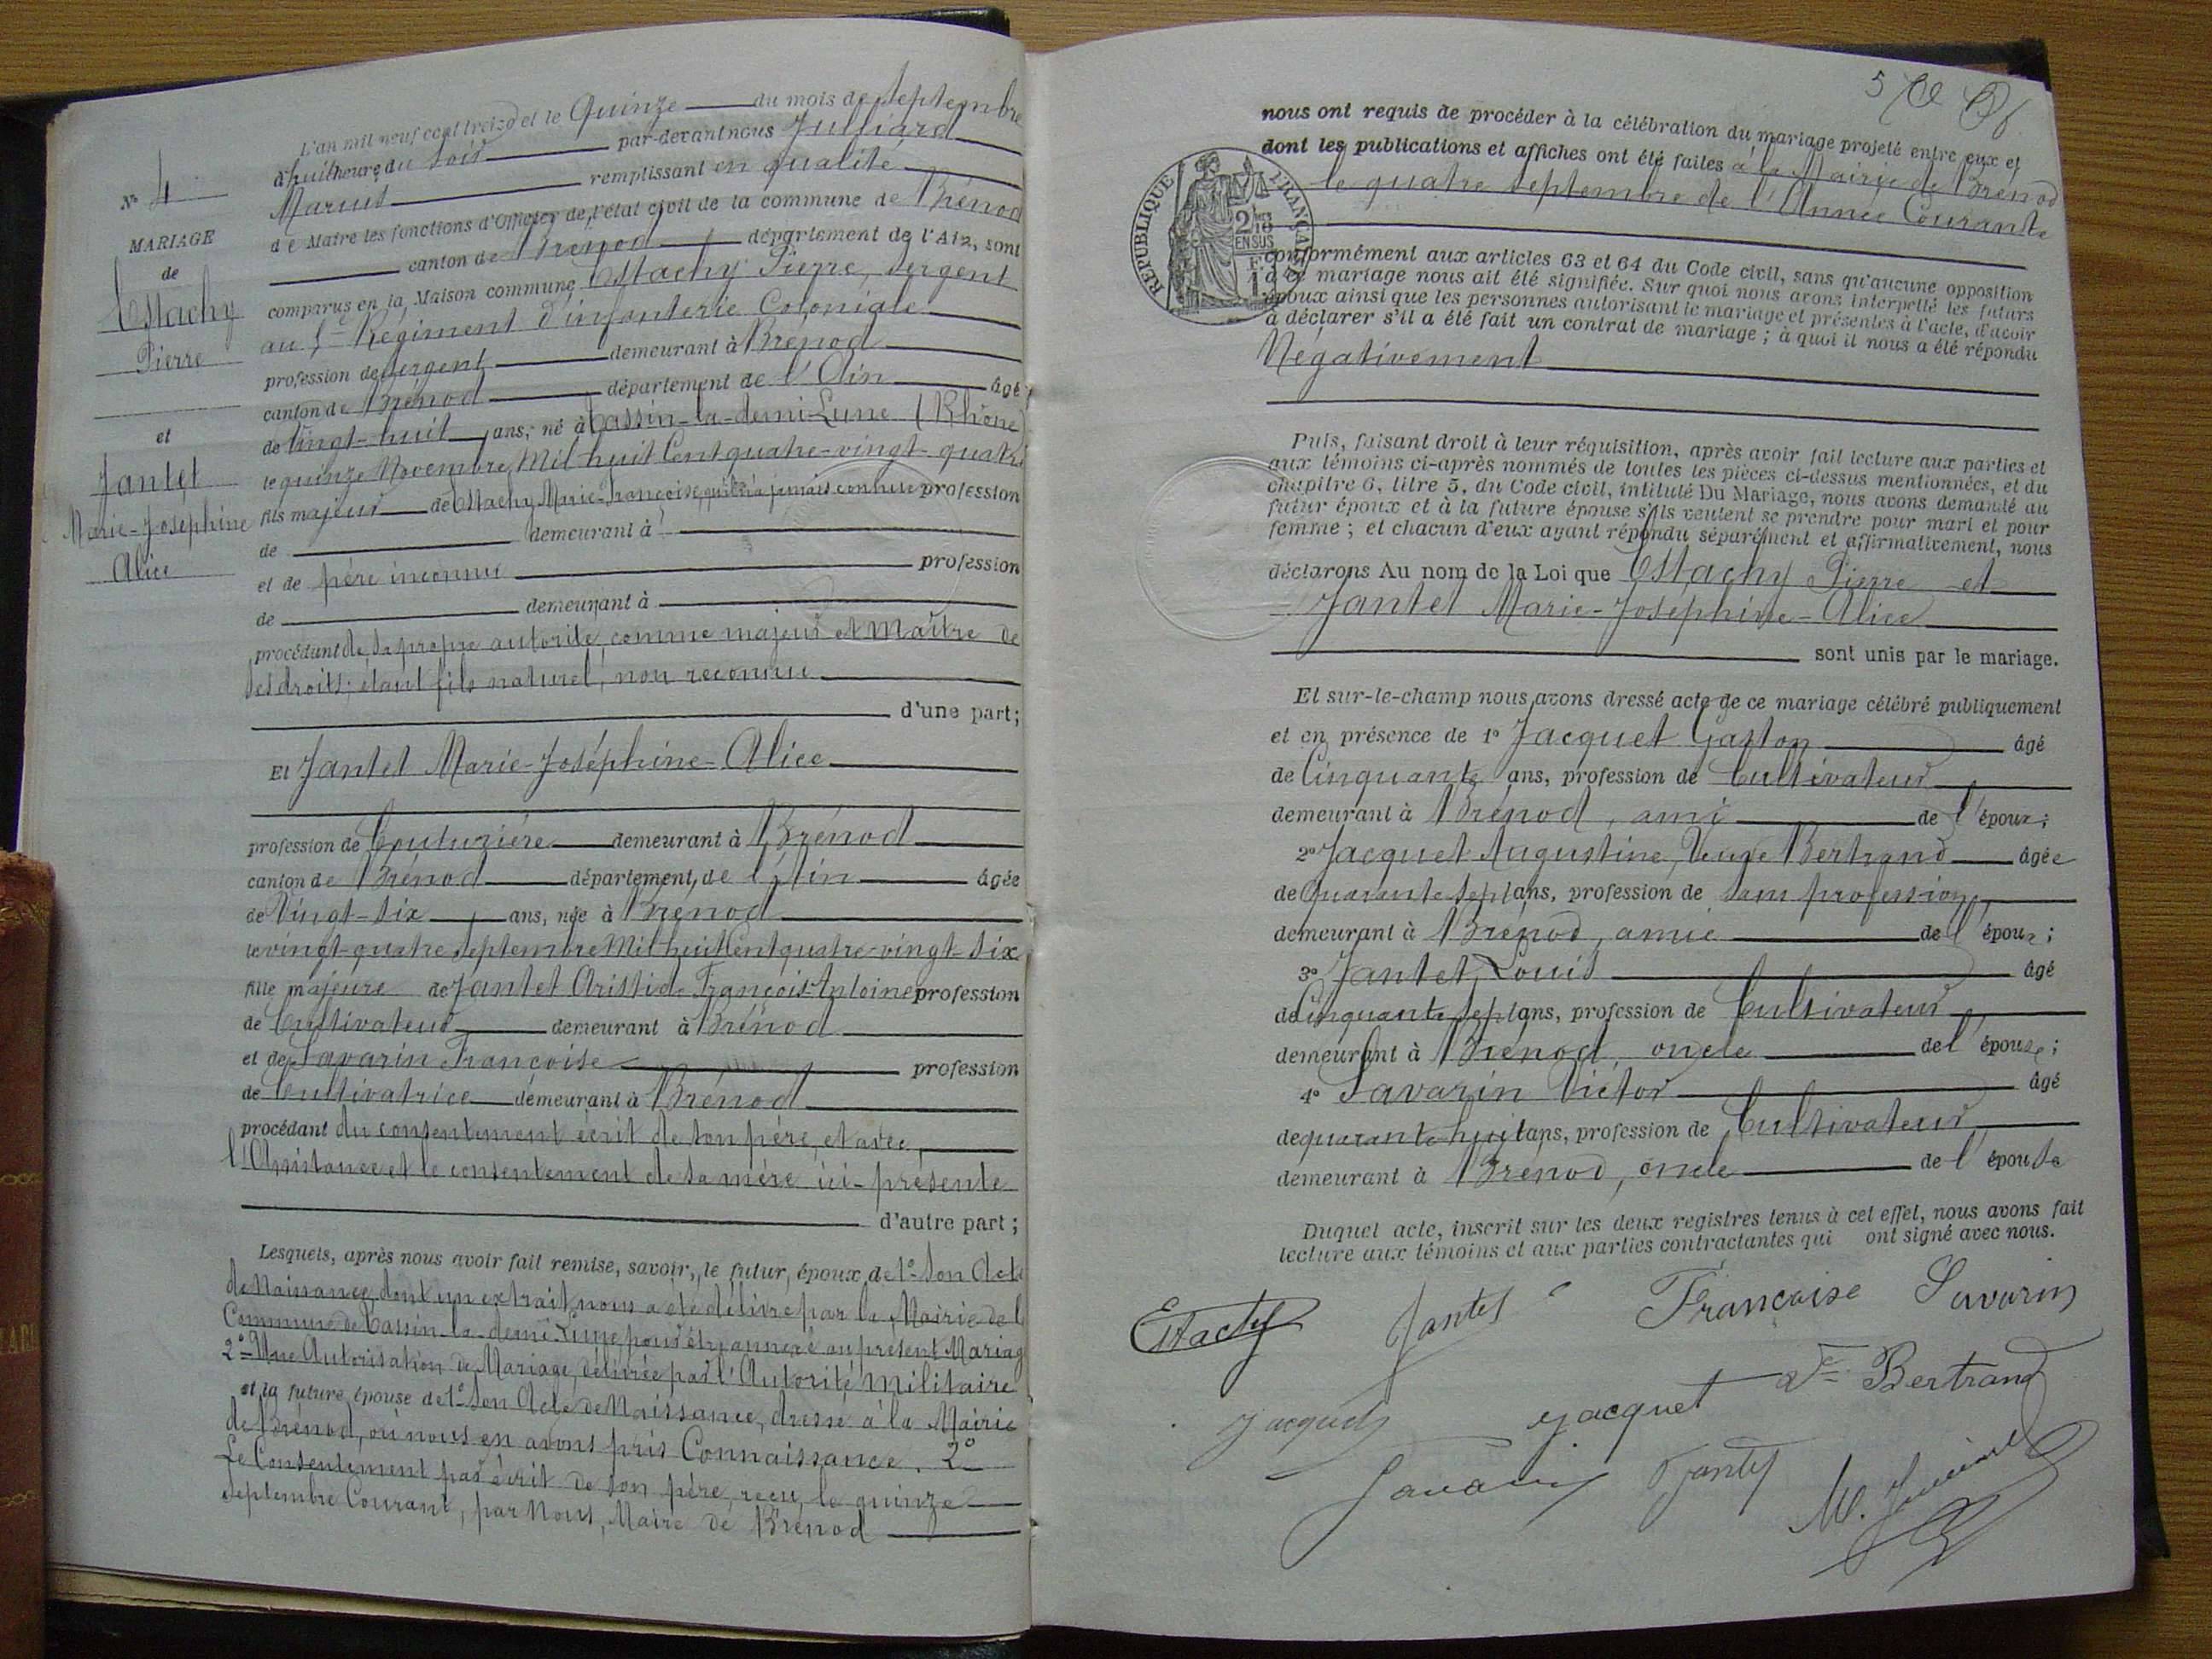 L'an mil neuf cent treize et le Quinze du mois de Septembre
à huit heure du soir par-devant nous Julliard
Marius remplissant en qualité
de Maire les fonctions d'Officier de l'état civil de la commune de Brénod
canton de Brénod département de l'Ain, sont
comparus en la Maison commune Estachy Pierre, Sergent
au 5me Régiment d'infanterie Coloniale
profession de Sergent demeurant à Brénod
canton de Brénod département de l'Ain âgé
de Vingt-huit ans, né à Tassin-la-demi-Lune (Rhône)
le quinze Novembre Mil huit Cent quatre-vingt-quatre
fils majeur de Estachy Marie-Françoise, qu'il n'a jamais connue profession
de demeurant à
et de père inconnu profession
de demeurant à
procédant de sa propre autorité, comme majeur et Maître de
ses droits; étant fils naturel, non reconnu
d'une part;
Et Jantet Marie-Joséphine-Alice
profession de Couturière demeurant à Brénod
canton de Brénod département de l'Ain âgée
de Vingt-six ans, née à Brénod
le vingt-quatre Septembre Mil huit Cent quatre-vingt-six
fille majeure de Jantet Aristide François-Antoine profession
de Cultivateur demeurant à Brénod
et de Savarin Françoise profession
de Cultivatrice demeurant à Brénod
procédant du consentement écrit de son père, et avec
l'Assistance et le consentement de sa mère ici-présente
d'autre part;
Lesquels, après nous avoir fait remise, savoir, le futur, époux, de 1° Son Acte
de Naissance, dont un extrait nous a été délivré par la Mairie de l
Commune de Tassin-la-demi-Lune pour être annexé au présent Mariag
2° Une Autorisation de Mariage, délivrée par l'Autorité Militaire
et la future épouse de 1° Son Acte de Naissance, dressé à la Mairie
de Brénod, où nous en avons pris Connaissance. 2°
Le Consentement par écrit de son père, reçu le quinze
Septembre Courant, par Nous, Maire de Brénod
N° 4
MARIAGE
de
Estachy
Pierre
et
Jantet
Marie-Joséphine
Alice
5
nous ont requis de procéder à la célébration du mariage projeté entre eux et
dont les publications et affiches ont été faites à la Mairie de Brénod
le quatre Septembre de l'Année Courante
RÉPUBLIQUE FRANÇAISE
2/10
EN SUS
conformément aux articles 63 et 64 du Code civil, sans qu'aucune opposition
à ce mariage nous ait été signifiée. Sur quoi nous avons interpellé les futurs
époux ainsi que les personnes autorisant le mariage et présentes à l'acte, d'avoir
à déclarer s'il a été fait un contrat de mariage; à quoi il nous a été répondu
Négativement
Puis, faisant droit à leur réquisition, après avoir fait lecture aux parties et
aux témoins ci-après nommés de toutes les pièces ci-dessus mentionnées, et du
chapitre 6, titre 5, du Code civil, intitulé Du Mariage, nous avons demandé au
futur époux et à la future épouse s'ils veulent se prendre pour mari et pour
femme; et chacun d'eux ayant répondu séparément et affirmativement, nous
déclarons Au nom de la Loi que Estachy Pierre et
Jantet Marie-Joséphine-Alice
sont unis par le mariage.
Et sur-le-champ nous avons dressé acte de ce mariage célébré publiquement
et en présence de 1° Jacquet Gaston âgé
de Cinquante ans, profession de Cultivateur
demeurant à Brénod, ami de l'époux;
2° Jacquet Augustine, Veuve Bertrand âgée
de Quarante sept ans, profession de sans profession
demeurant à Brénod, amie de l'époux;
3° Jantet Louis âgé
de Cinquante sept ans, profession de Cultivateur
demeurant à Brénod, oncle de l'épouse;
4° Savarin Victor âgé
de quarante huit ans, profession de Cultivateur
demeurant à Brénod, oncle de l'épouse
Duquel acte, inscrit sur les deux registres tenus à cet effet, nous avons fait
lecture aux témoins et aux parties contractantes qui ont signé avec nous.
Estachy Jantet Françoise Savarin
Jacquet Jacquet Ve Bertrand
Savarin Jantet M. Julliard